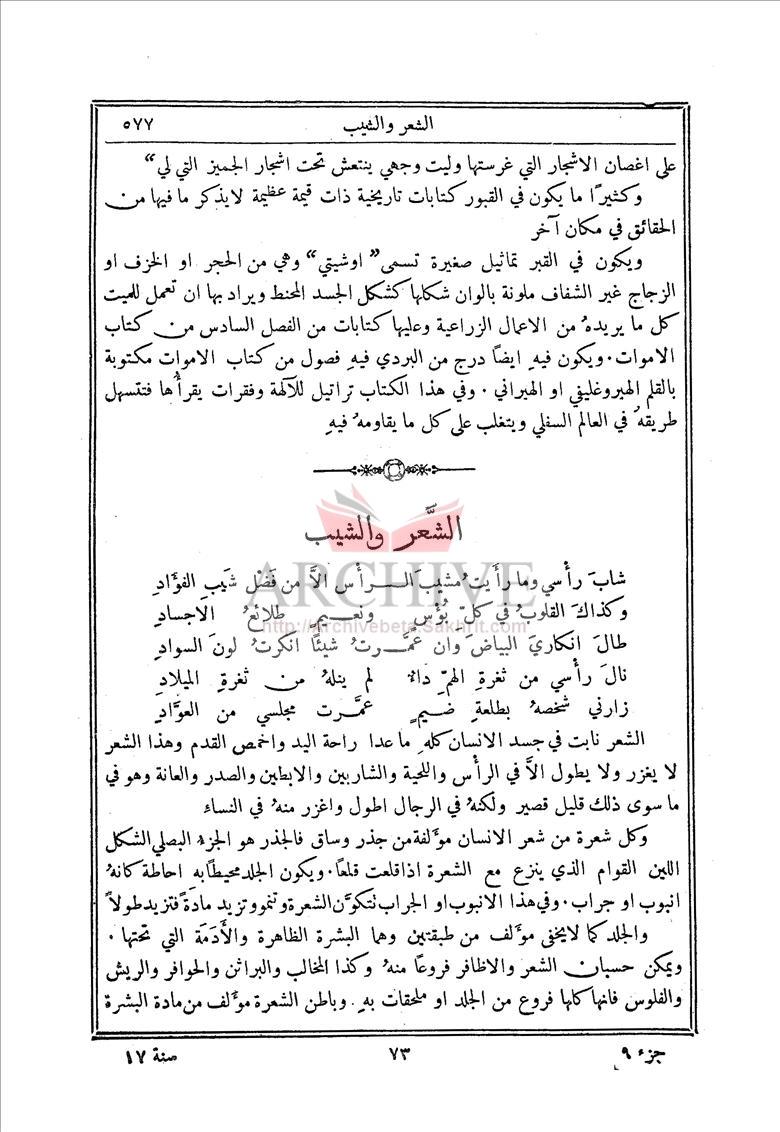 الشعر والشيب ٥٧٧
على اغصان الاشجار التي غرستها وليت وجهي ينتعش تحت اشجار الجميز التي لي“
وكثيرًا ما يكون في القبور كتابات تاريخية ذات قيمة عظيمة لا يذكر ما فيها من
الحقائق في مكان آخر
ويكون في القبر تماثيل صغيرة تسمى ”اوشيتي“ وهي من الحجر او الخزف او
الزجاج غير الشفاف ملونة بالوان شكلها كشكل الجسد المحنط ويراد بها ان تعمل للميت
كل ما يريدهُ من الاعمال الزراعية وعليها كتابات من الفصل السادس من كتاب
الاموات. ويكون فيهِ ايضاً درج من البردي فيهِ فصول من كتاب الاموات مكتوبة
بالقلم الهيروغليفي او الهبراني. وفي هذا الكتاب تراتيل للآلهة وفقرات يقرأُها فتتسهل
طريقهُ في العالم السفلي ويتغلب على كل ما يقاومهُ فيهِ
الشَّعر والشيب
ARCHIVE
http://Archivebeta.Sakhrit.com
شابَ رأْسي وما رأَيتُ مشيبَ الــرأْس الاَّ من فَضْل شَيبِ الفؤَادِ
وكذاكَ القلوبُ في كلّ بُؤْسٍ ونعيمٍ طلائعُ الاجسادِ
طالَ انكاريَ البياضَ وان عمَّرتُ شيئًا انكرتُ لونَ السوادِ
نال رأْسي من ثغرةِ الهمِّ داءٌ لم ينلهُ من ثغرةِ الميلادِ
زارني شخصهُ بطلعةِ ضيمٍ عمَّرت مجلسي من العوَّادِ
الشعر نابت في جسد الانسان كلهِ ما عدا راحة اليد واخمص القدم وهذا الشعر
لا يغزر ولا يطول الاَّ في الرأْس واللحية والشاربين والابطين والصدر والعانة وهو في
ما سوى ذلك قليل قصير ولكنهُ في الرجال اطول واغزر منهُ في النساء
وكل شعرة من شعر الانسان مؤَلفة من جذر وساق فالجذر هو الجزءُ البصلي الشكل
اللين القوام الذي ينزع مع الشعرة اذا قلعت قلعاً. ويكون الجلد محيطاً به احاطة كانهُ
انبوب او جراب. وفي هذا الانبوب او الجراب تتكوَّن الشعرة وتنمو وتزيد مادَةً فتزيد طولاً
والجلد كما لا يخفى مؤَلف من طبقتين وهما البشرة الظاهرة والأَدَمَة التي تحتها.
ويمكن حسبان الشعر والاظافر فروعاً منهُ وكذا المخالب والبراثن والحوافر والريش
والفلوس فانها كلها فروع من الجلد او ملحقات بهِ. وباطن الشعرة مؤَلف من مادة البشرة
جزء ٩ ٧٣ سنة ١٧